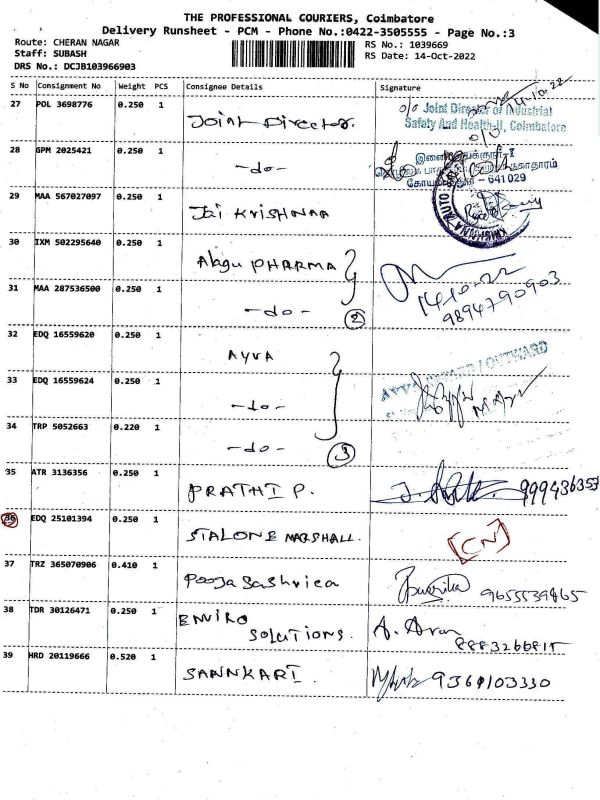 THE PROFESSIONAL COURIERS, Coimbatore
Delivery Runsheet - PCM - Phone No.:0422-3505555 - Page No.:3
Route: CHERAN NAGAR
RS No.: 1039669
Staff: SUBASH
RS Date: 14-Oct-2022
DRS No.: DCJB103966903
S No Consignment No Weight PCS Consignee Details Signature
27 POL 3698776 0.250 1 Joint Director. 14-10-22
o/o Joint Director of Industrial
Safety And Health-II, Coimbatore
28 GPM 2025421 0.250 1 -do-
கோயமுத்தூர் - 641029
29 MAA 567027097 0.250 1 Jai KRISHNAA
30 IXM 502295640 0.250 1 Alagu PHARMA
31 MAA 287536500 0.250 1 -do- 2 14-10-22
9894790903
32 EDQ 16559620 0.250 1 AYVA
33 EDQ 16559624 0.250 1 -do-
34 TRP 5052663 0.220 1 -do- 3
35 ATR 3136356 0.250 1 PRATHI P.
36 EDQ 25101394 0.250 1 STALONE MARSHALL. [CN]
37 TRZ 365070906 0.410 1 Pooja Sashrica 9655539465
38 TDR 30126471 0.250 1 ENVIRO
SOLUTIONS. A. Arun
8883266815
39 HRD 20119666 0.520 1 SANNKARI. 9361103330